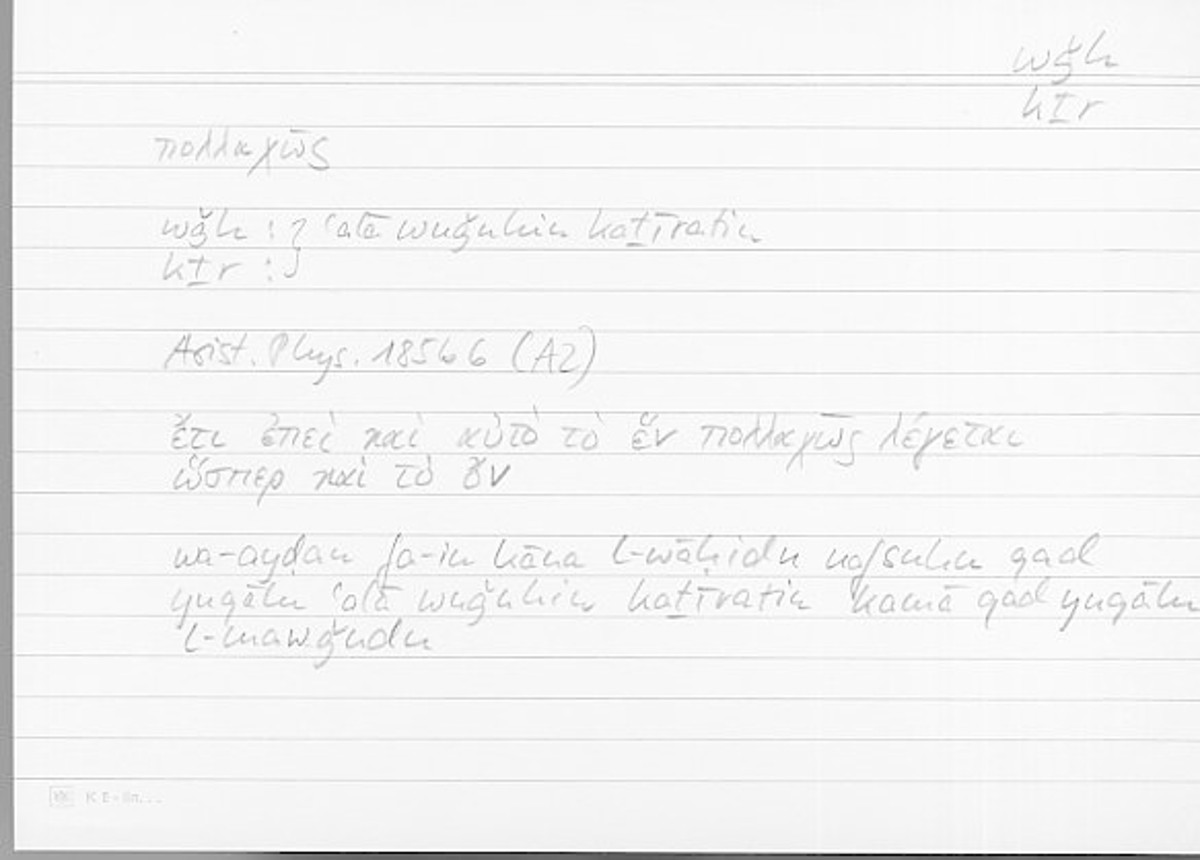 wǧh
kṯr
πολλαχῶς
wǧh : } ʿalā wuǧūhin kaṯīratin
kṯr : }
Arist. Phys. 185b6 (A2)
ἔτι ἐπεὶ καὶ αὐτὸ τὸ ἕν πολλαχῶς λέγεται
ὥσπερ καὶ τὸ ὄν
wa-ayḍan fa-in kāna l-wāḥidu nafsuhu qad
yuqālu ʿalā wuǧūhin kaṯīratin kamā qad yuqālu
l-mawǧūdu